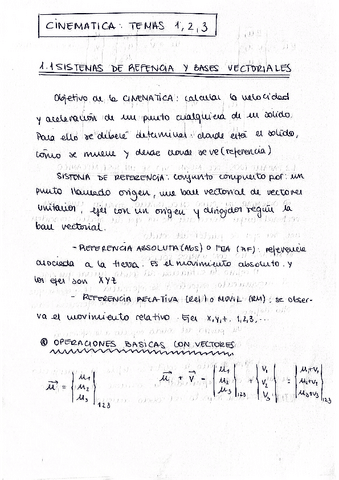 CINEMATICA: TEMAS 1, 2, 3
1.1 SISTEMAS DE REFENCIA Y BASES VECTORIALES
Objetivo de la CINEMATICA: calcular la velocidad
y aceleración de un punto cualquiera de un sólido.
Para ello se deberá determinar: donde está el solido,
cómo se mueve y desde donde se ve (referencia)
SISTEMA DE REFERENCIA: conjunto compuesto por: un
punto llamado origen, una base vectorial de vectores
unitarios, ejes con un origen y dirigidos según la
base vectorial.
- REFERENCIA ABSOLUTA (Abs) o FIJA (RF): referencia
asociada a la tierra. Es el movimiento absoluto. y
los ejes son XYZ
- REFERENCIA RELATIVA (Rel) o MOVIL (RM): se obser-
va el movimiento relativo. Ejes x, y, z. 1,2,3,...
OPERACIONES BASICAS CON VECTORES
u⃗ = |u1 u2 u3|123 u⃗ + v⃗ = |u1 u2 u3|123 + |v1 v2 v3| = |u1+v1 u2+v2 u3+v3|123